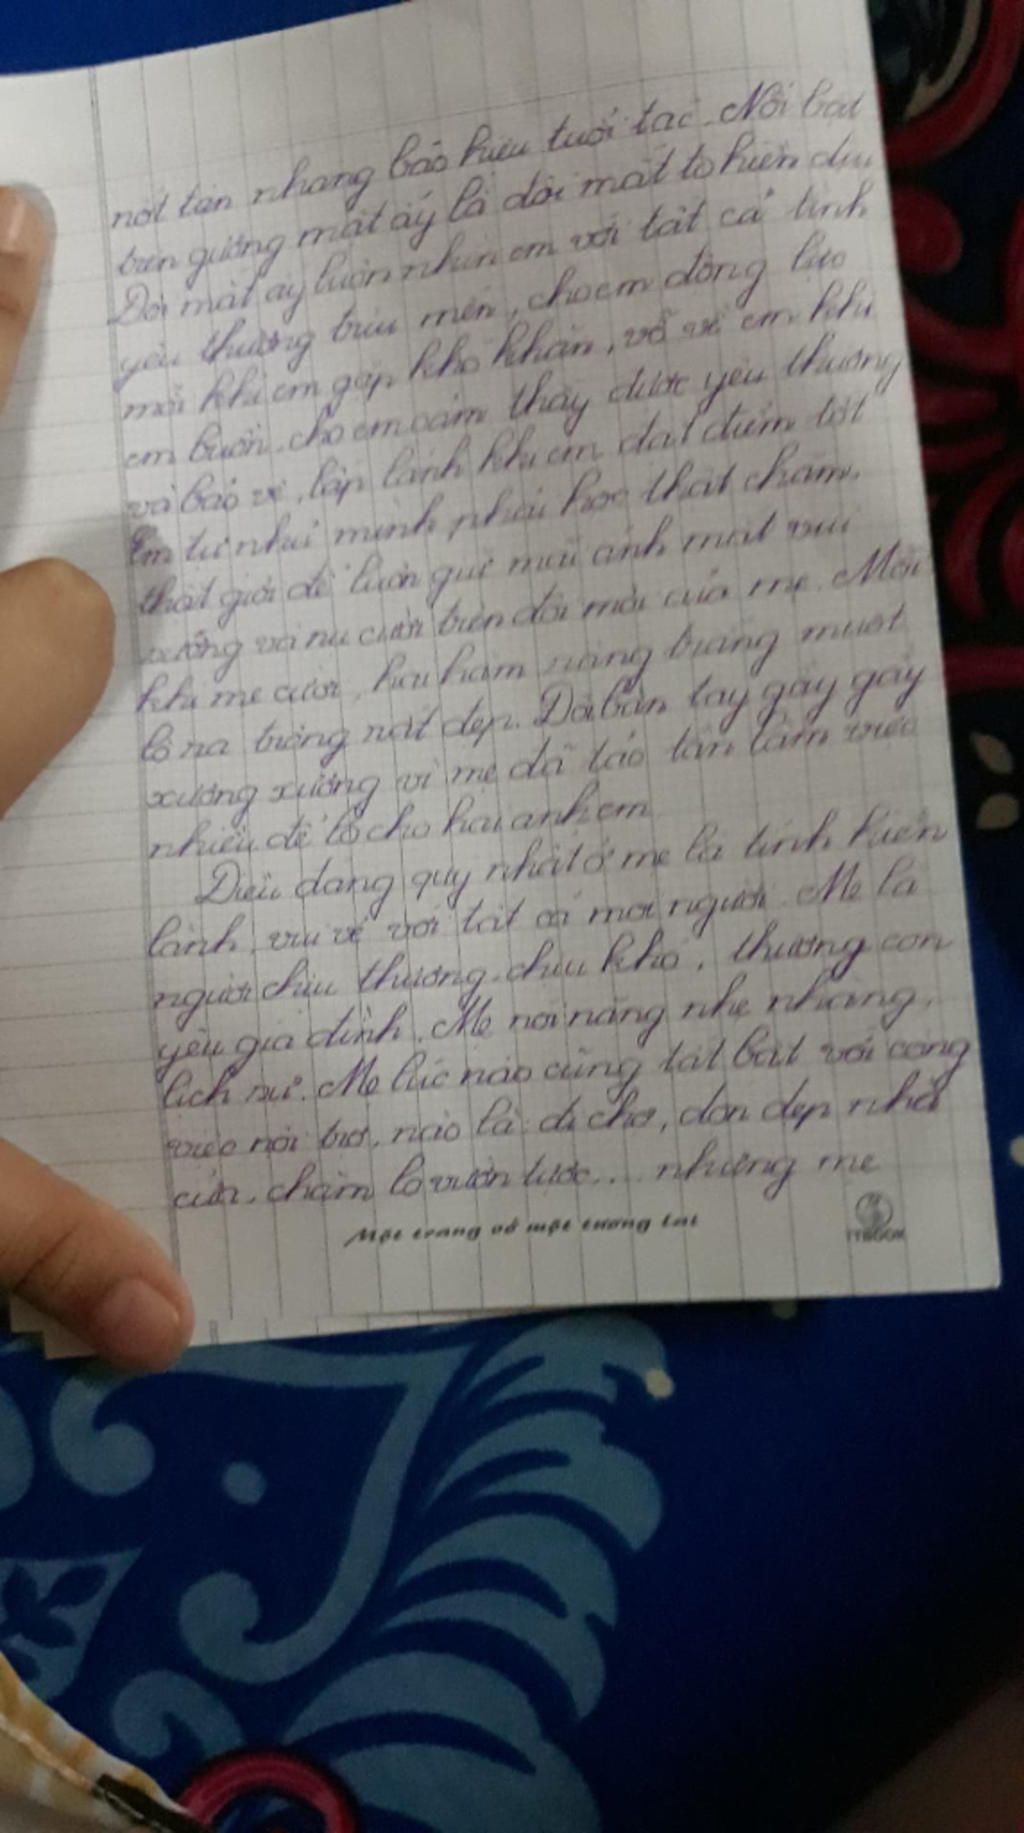 nốt tàn nhang báo hiệu tuổi tác. Nổi bật
trên gương mặt ấy là đôi mắt to hiền dịu
Đôi mắt ấy luôn nhìn em với tất cả tình
yêu thương trìu mến, cho em động lực
mỗi khi em gặp khó khăn, vỗ về em khi
em buồn, cho em cảm thấy được yêu thương
và bảo vệ, lấp lánh khi em đạt điểm tốt
Em tự nhủ mình phải học thật chăm,
thật giỏi để luôn giữ mãi ánh mắt vui
sướng và nụ cười trên đôi môi của mẹ. Mỗi
khi mẹ cười, hai hàm răng trắng muốt
lộ ra trông rất đẹp. Đôi bàn tay gầy gầy
xương xương vì mẹ đã tảo tần làm việc
nhiều để lo cho hai anh em
Điều đáng quý nhất ở mẹ là tính hiền
lành, vui vẻ với tất cả mọi người. Mẹ là
người chịu thương, chịu khó, thương con
yêu gia đình. Mẹ nói năng nhẹ nhàng,
lịch sự. Mẹ lúc nào cũng tất bật với công
việc nội trợ, nào là: đi chợ, dọn dẹp nhà
cửa, chăm lo vườn tược... nhưng mẹ
Một trang vở một tương lai
TYBOOK